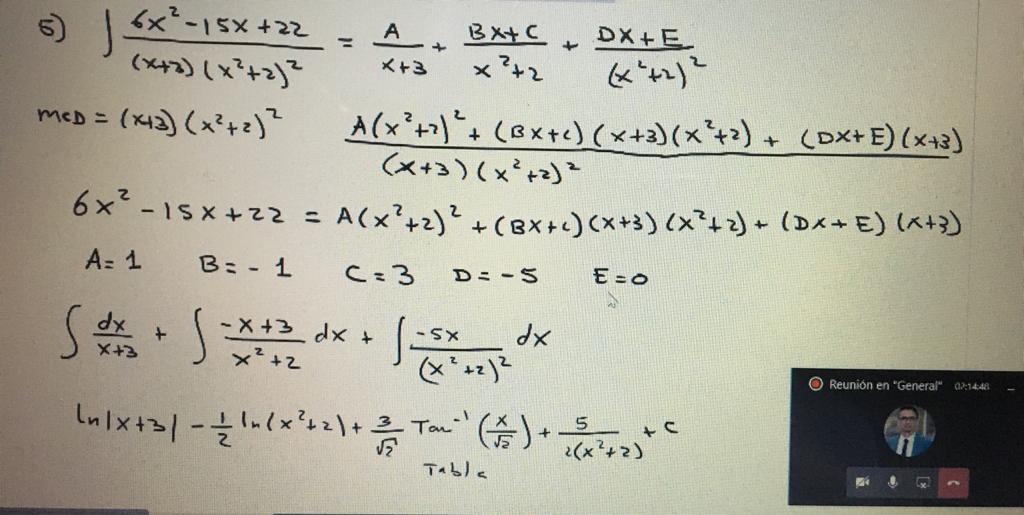 5) ∫ 6x² - 15x + 22 / (x+3)(x²+2)² = A / x+3 + Bx+C / x²+2 + Dx+E / (x²+2)²
mcD = (x+3)(x²+2)² A(x²+2)² + (Bx+c)(x+3)(x²+2) + (Dx+E)(x+3) / (x+3)(x²+2)²
6x² - 15x + 22 = A(x²+2)² + (Bx+c)(x+3)(x²+2) + (Dx+E)(x+3)
A = 1 B = -1 C = 3 D = -5 E = 0
∫ dx / x+3 + ∫ -x+3 / x²+2 dx + ∫ -5x / (x²+2)² dx
ln|x+3| - 1/2 ln(x²+2) + 3/√2 Tan⁻¹ (x/√2) + 5 / 2(x²+2) + c
Tabla
Reunión en "General" 02:14:48